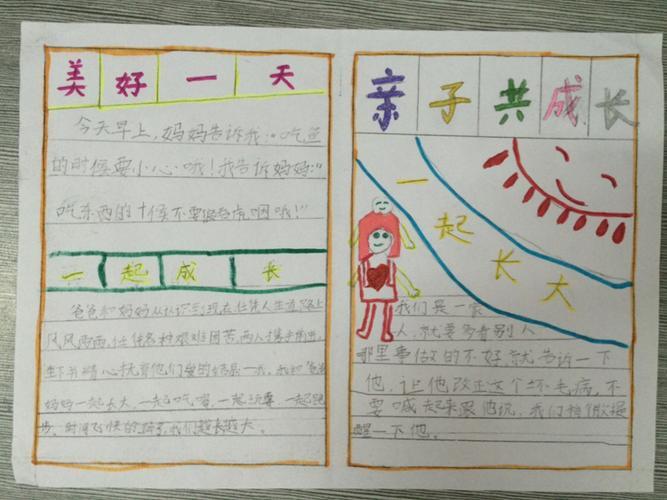 美好一天
今天早上,妈妈告诉我:"吃鱼
的时候要小心哦!我告诉妈妈:"
吃东西的时候不要狼吞虎咽哦!"
一起成长
爸爸和妈妈从认识到现在任凭人生道路上
风风雨雨,任凭各种艰难困苦,两人携手
我和爸爸
妈妈一起长大,一起吃喝,一起玩耍,一起跑
步,时间飞快的,我们越长越大。
亲子共成长
一起长大
我们是一家
人,就要多看别人
哪里事做的不好,就告诉一下
他,让他改正这个坏毛病,不
要喊起来跟他说,我们稍微提
醒一下他。